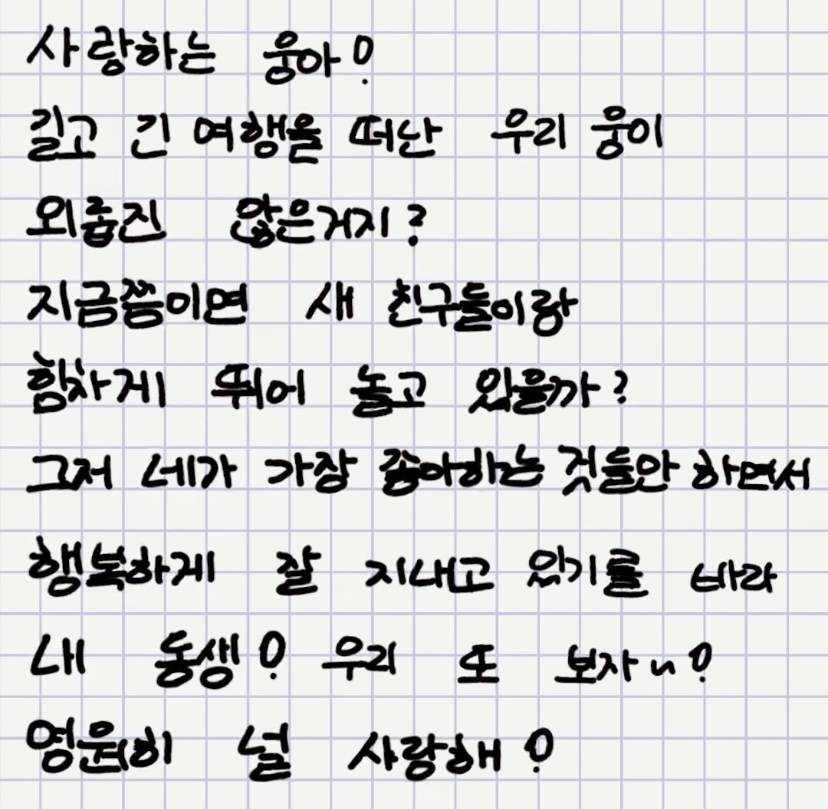 사랑하는 웅아!
길고 긴 여행을 떠난 우리 웅이
외롭진 않은거지?
지금쯤이면 새 친구들이랑
힘차게 뛰어 놀고 있을까?
그저 네가 가장 좋아하는 것들만 하면서
행복하게 잘 지내고 있기를 바라
내 동생! 우리 또 보자~!
영원히 널 사랑해!